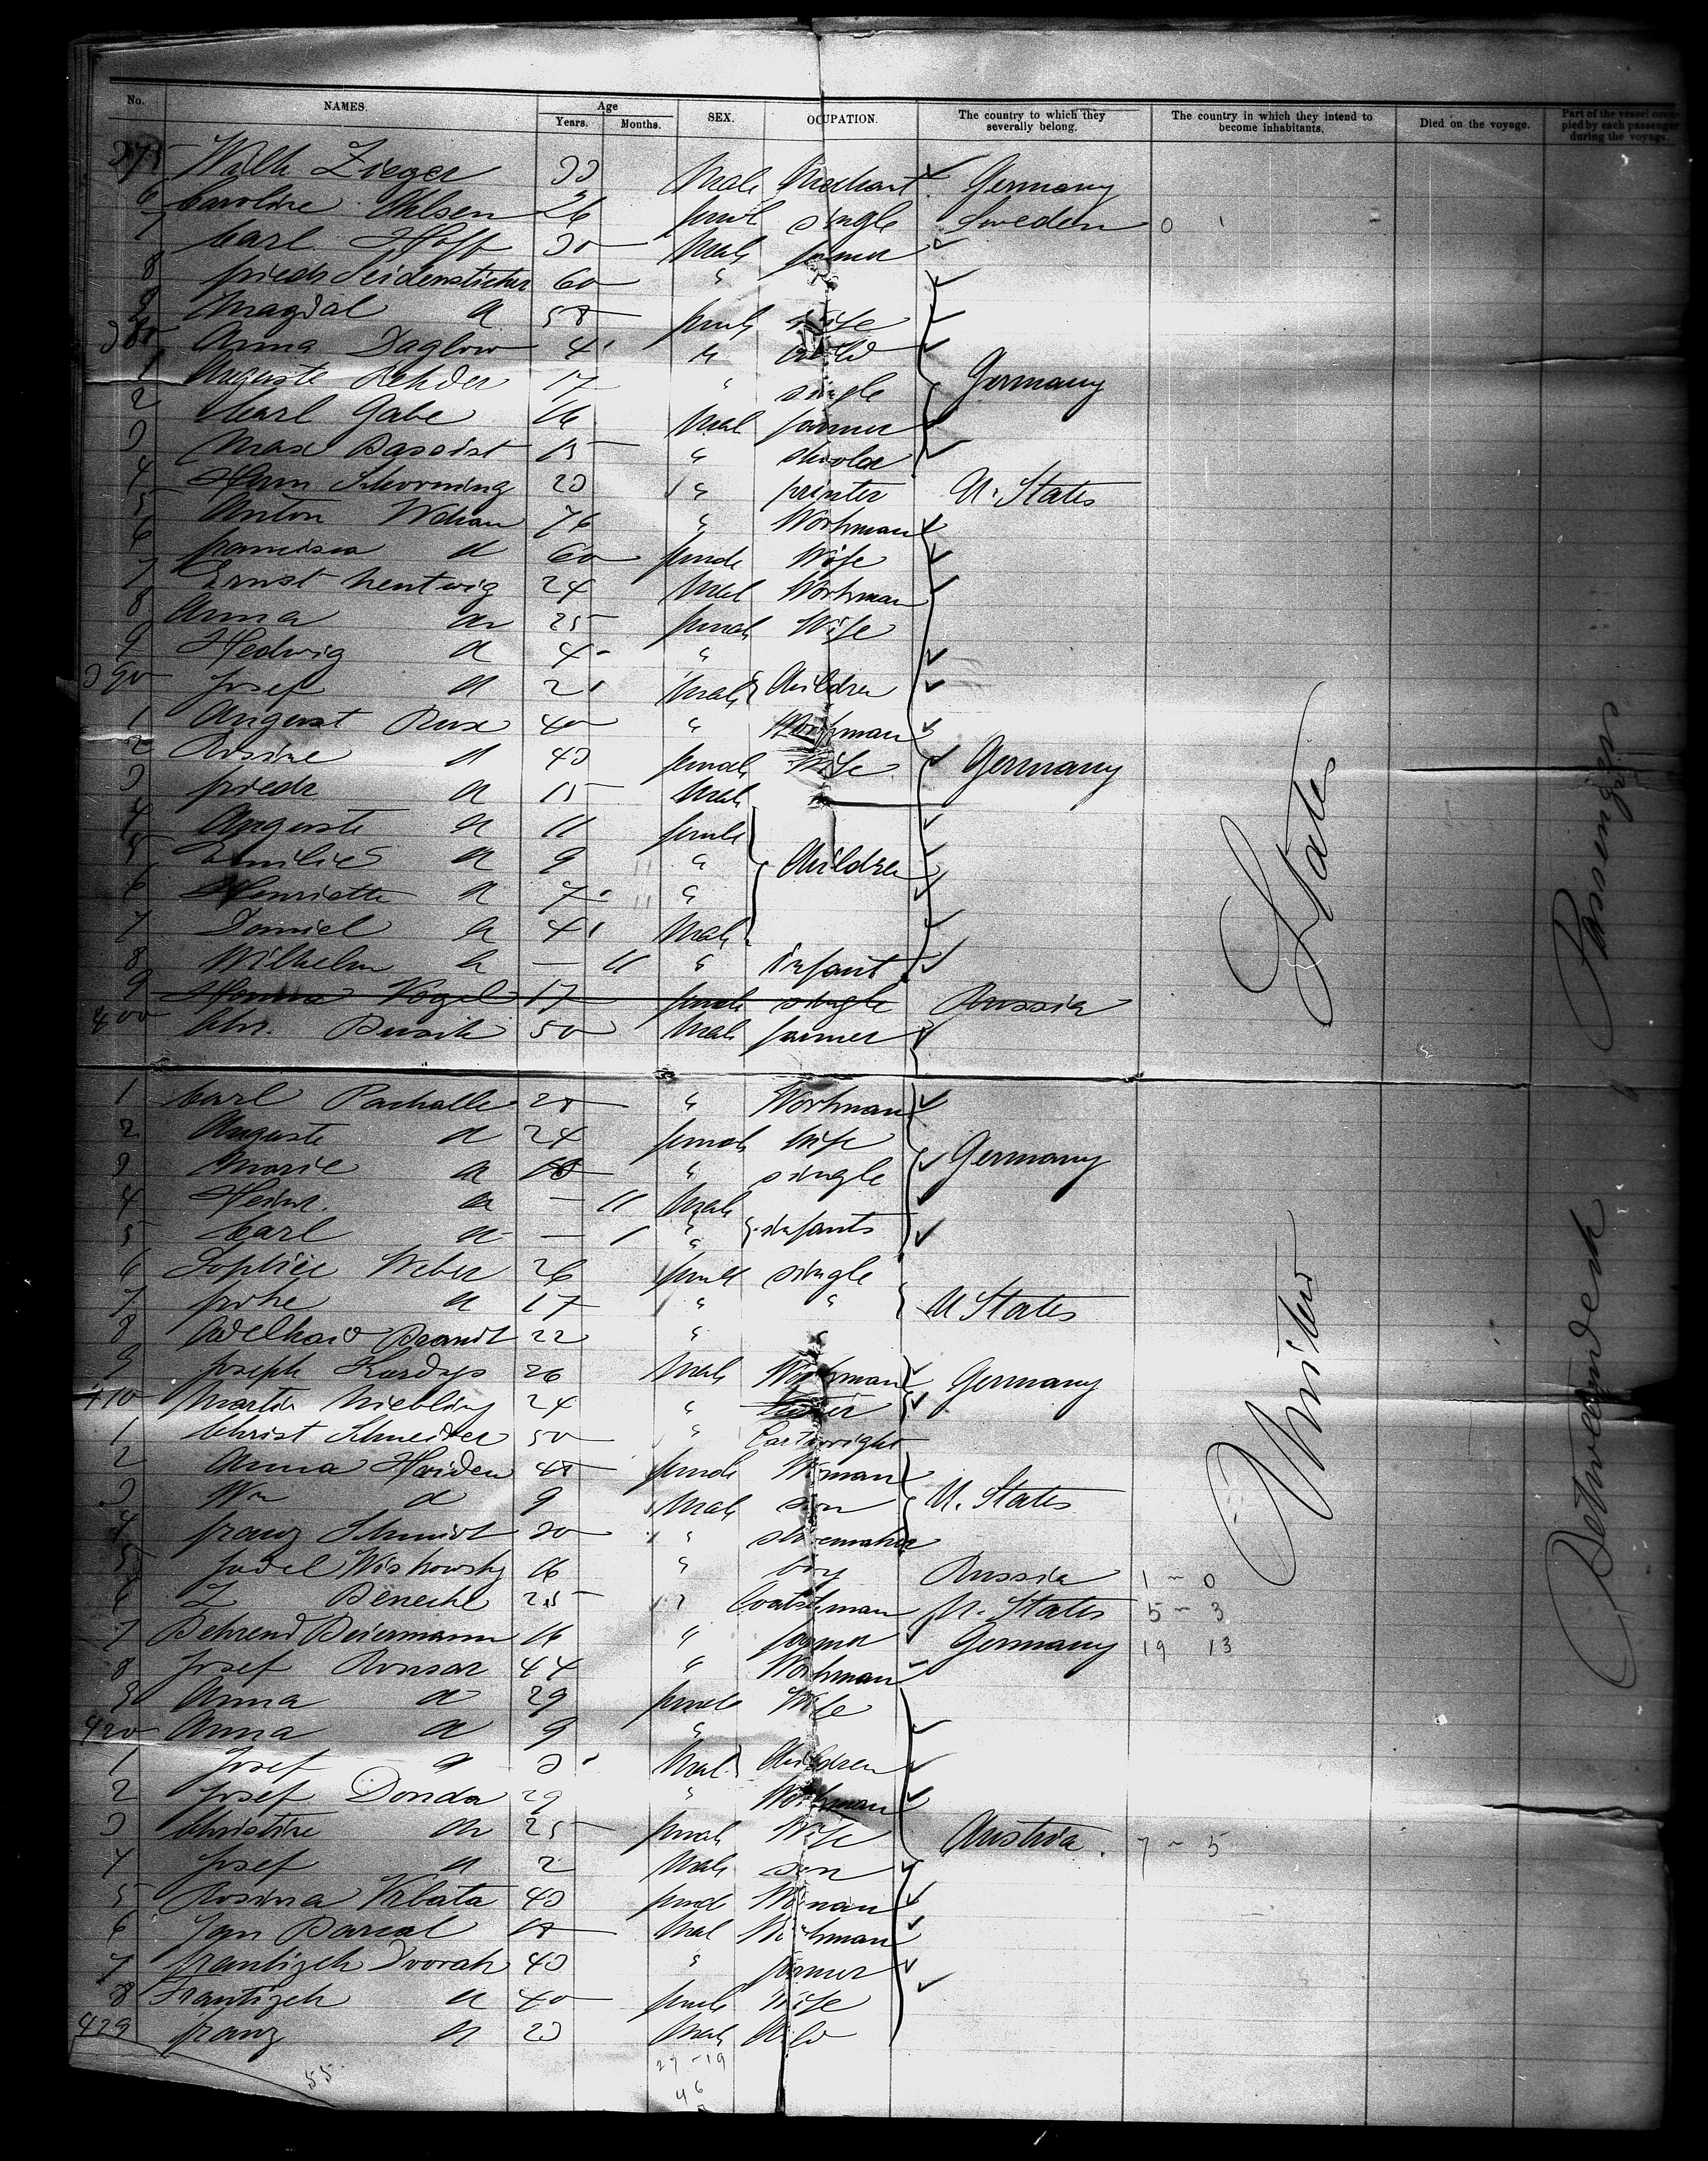 No. NAMES. Age Years. Months. SEX. OCUPATION. The country to which they severally belong. The country in which they intend to become inhabitants. Died on the voyage. Part of the vessel occupied by each passenger during the voyage.
375 Wilh Zieger 33 Male Merchant Germany
6 Caroline Ohlsen 26 femal single Sweden 0 1
7 Carl Hoff 30 Male farmer
8 friedr Seidensticker 60 "
9 Magdal d 58 female Wife
380 Anna Daglow 4 " child
1 Auguste Rehder 17 " single Germany
2 Carl Gabe 16 Mal farmer
3 Max 15 "
4 Herm Schorning 23 " printer U. States
5 Anton 76 " Workman
6 francisca d 60 female Wife
7 Ernst Hentwig 24 Mal Workman
8 Anna d 25 female Wife
9 Hedwig d 4 "
390 Josef d 2 Male Children
1 August Rux 40 " Workman
2 Rosine d 43 female Wife Germany
3 friedr d 15 Male
4 Auguste d 11 female
5 Emilie d 9 " Children
6 Henriette d 7 "
7 Daniel d 4 Male
8 Wilhelm d — 11 " infant
9 Hanna Vogel 17 female single Russia
400 Chr. 50 Male farmer
1 Carl Pachalle 28 " Workman
2 Auguste d 24 female Wife
3 Marie d 18 " single Germany
4 Heinr. d — 11 Male
5 Carl d — 1 " infants
6 Sophie Weber 26 female single
7 d 17 " " U States
8 Adelhaid Brandt 22 " "
9 Joseph Kurdys 26 Male Workman Germany
410 Martin Niebling 24 "
1 Christ Schneider 50 " Cartwright
2 Anna Haiden 48 female Woman
3 Wm d 9 Male son U. States
4 franz Schmidt 30 " shoemaker
5 Judel Wishowsky 16 " boy Russia 1 - 0
6 Z Beneche 25 " Coatchman U. States 5 - 3
7 Behrend Beiermann 16 " farmer Germany 19 13
8 Josef 44 " Workman
9 Anna d 29 female Wife
420 Anna d 9 "
1 Josef d 3 Mal Children
2 Josef Donda 29 " Workman
3 Christine d 25 female Wife Austria. 7 - 5
4 Josef d 2 Male son
5 Rosina Vrbata 43 female Woman
6 Jan 18 Mal Workman
7 frantizek Dvorak 43 " farmer
8 Frantizek d 40 female Wife
429 franz d 23 Male Child
27 - 19
46
55
United States
Betweendeck Passengers